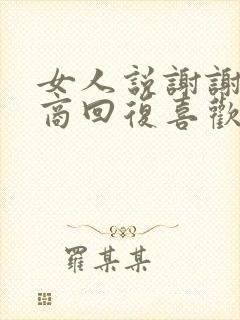 女人説謝謝
商回復喜歡
羅某某